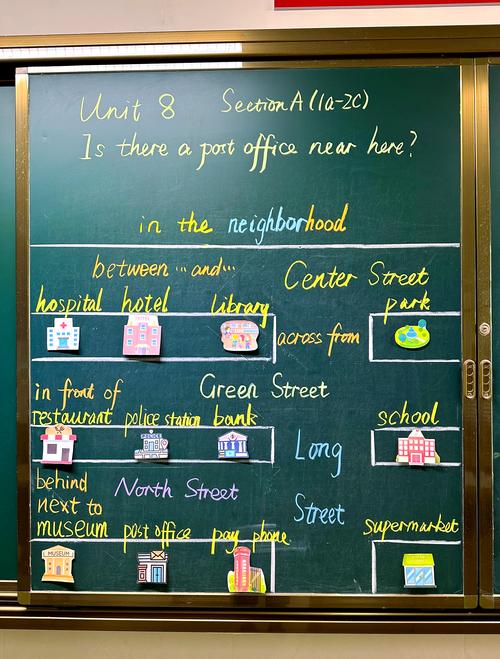 Unit 8 Section A (1a-2c)
Is there a post office near here?
in the neighborhood
between ... and...
Center Street
hospital hotel library park
across from
in front of
Green Street
restaurant police station bank school
Long
Street
behind
next to
North Street
museum post office pay phone supermarket
HOTEL
POLICE
MUSEUM